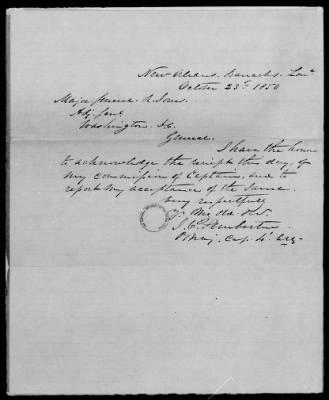 New Orleans Barracks Lou^a
October 23^d 1850
Major General R. Jones.
Adj. Genl.
Washington. D.C.
General.
I have the honor
to acknowledge the receipt this day, of
my commission of Captain, and to
report my acceptance of the same.
Very respectfully
Yr. Obd. St.
J. C. Pemberton
Bt. Maj. Cap. 4^h Arty